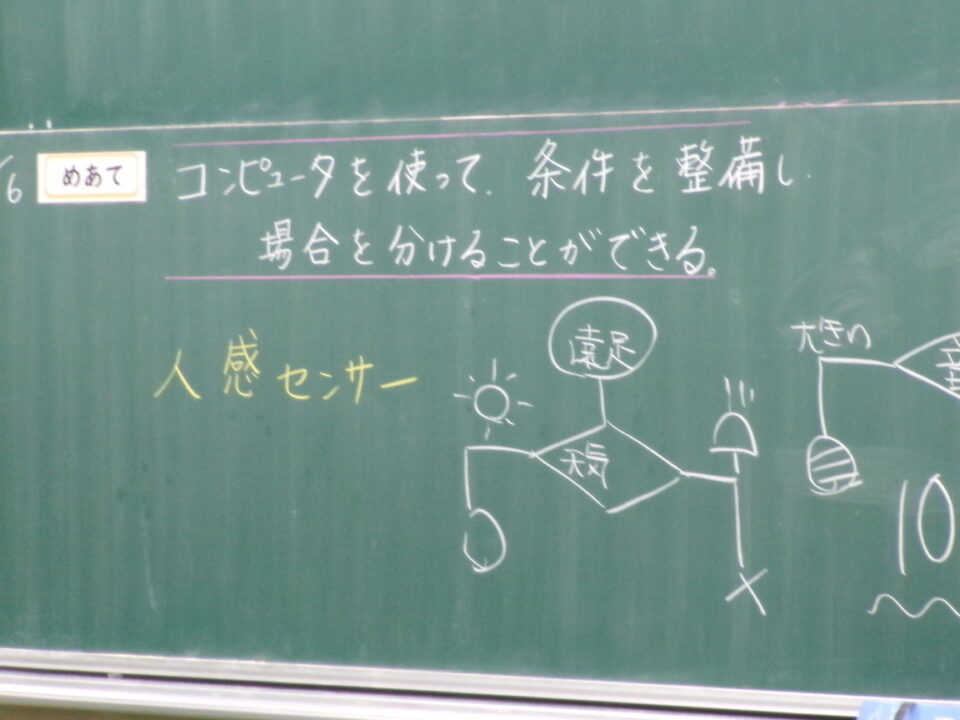 6 めあて コンピュータを使って、条件を整備し
場合を分けることができる。
人感センサー
遠足
天気
×
大きい
10